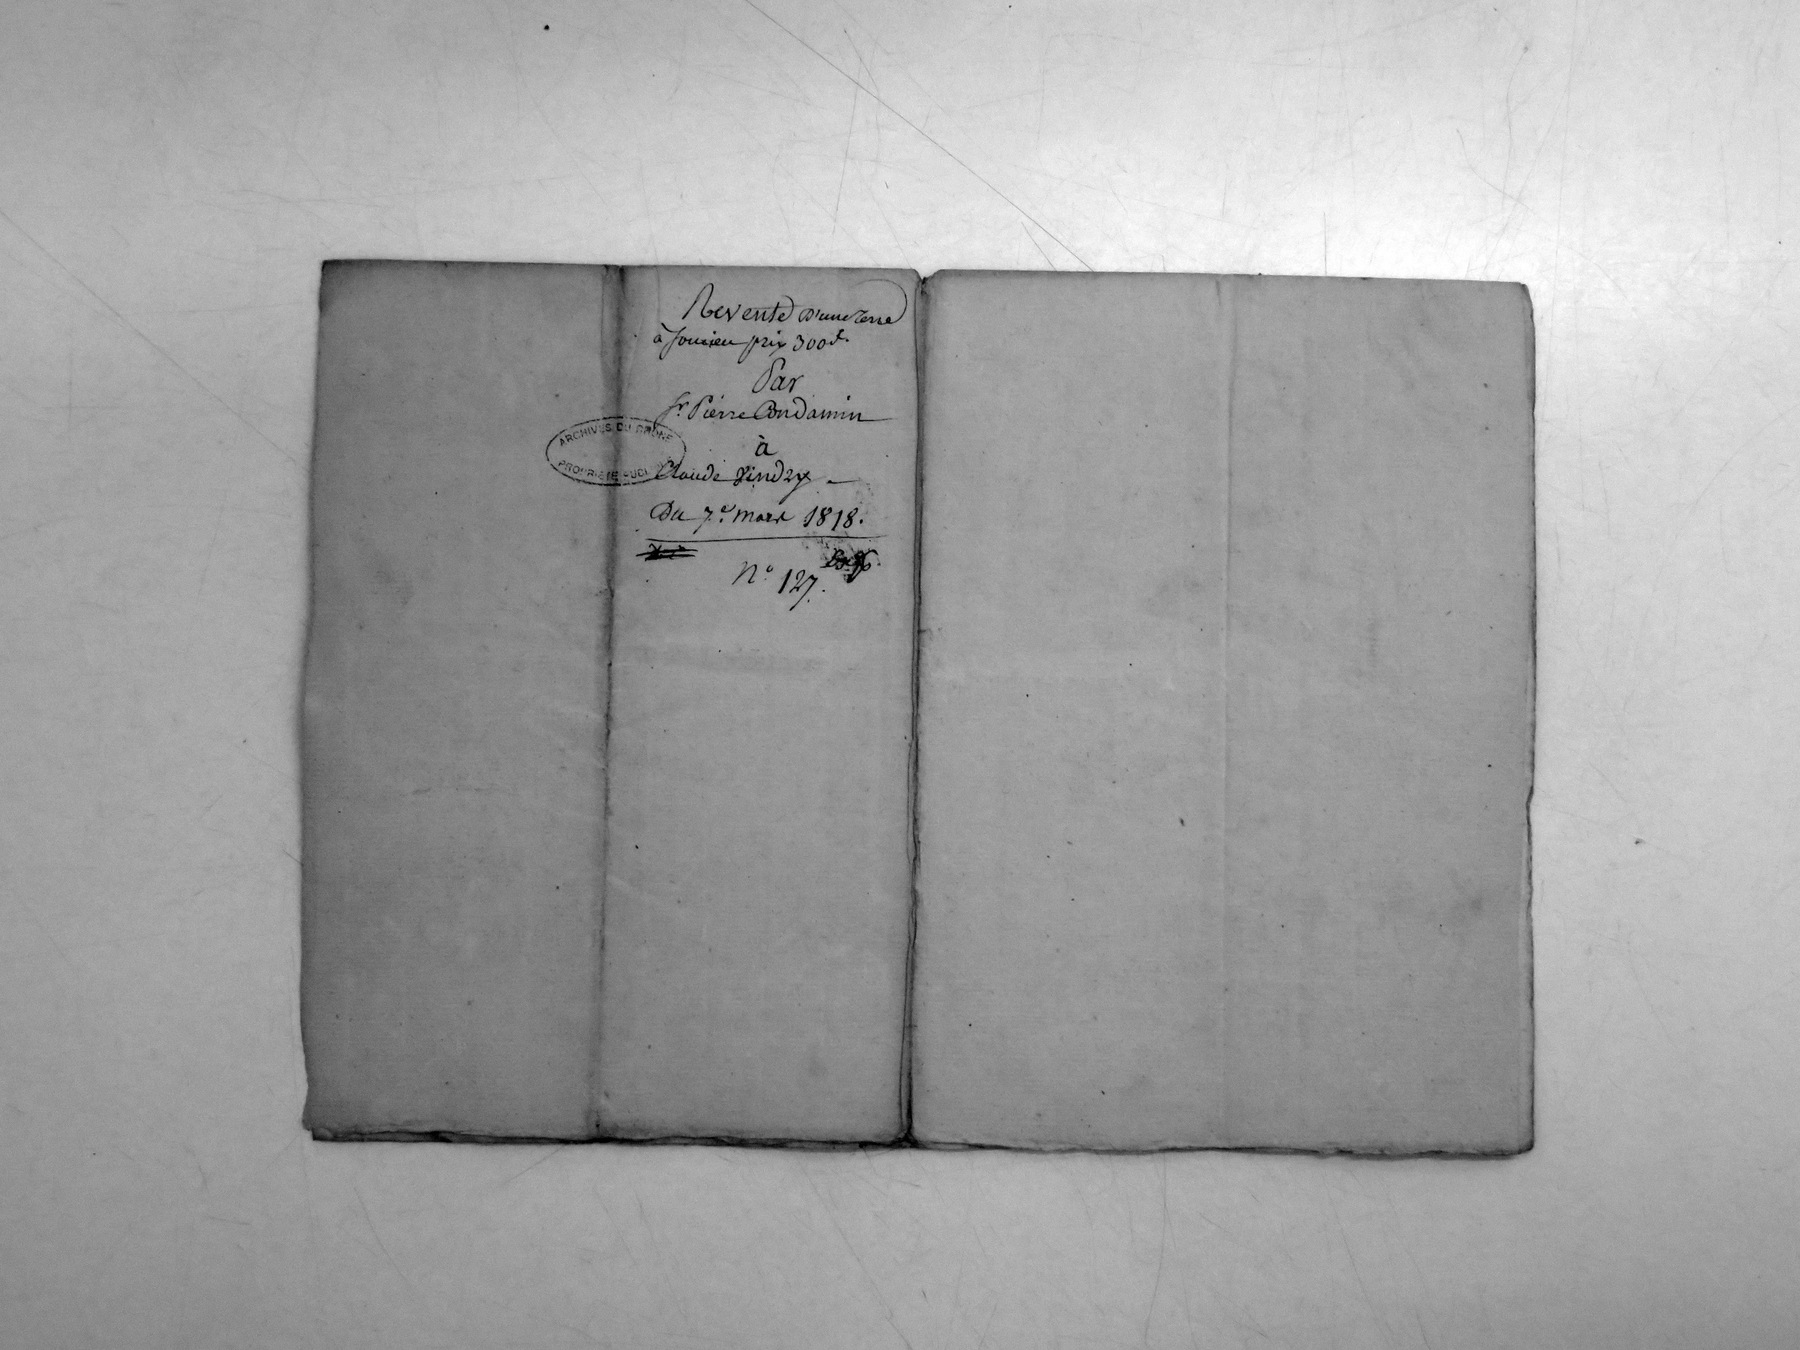 Revente d'une terre
à Soucieu prix 300f.
Par
Sr. Pierre Condamin
à
Claude Vindry
Du 7e. mars 1818.
N° 127.
ARCHIVES DU RHÔNE
PROPRIÉTÉ PUBLIQUE